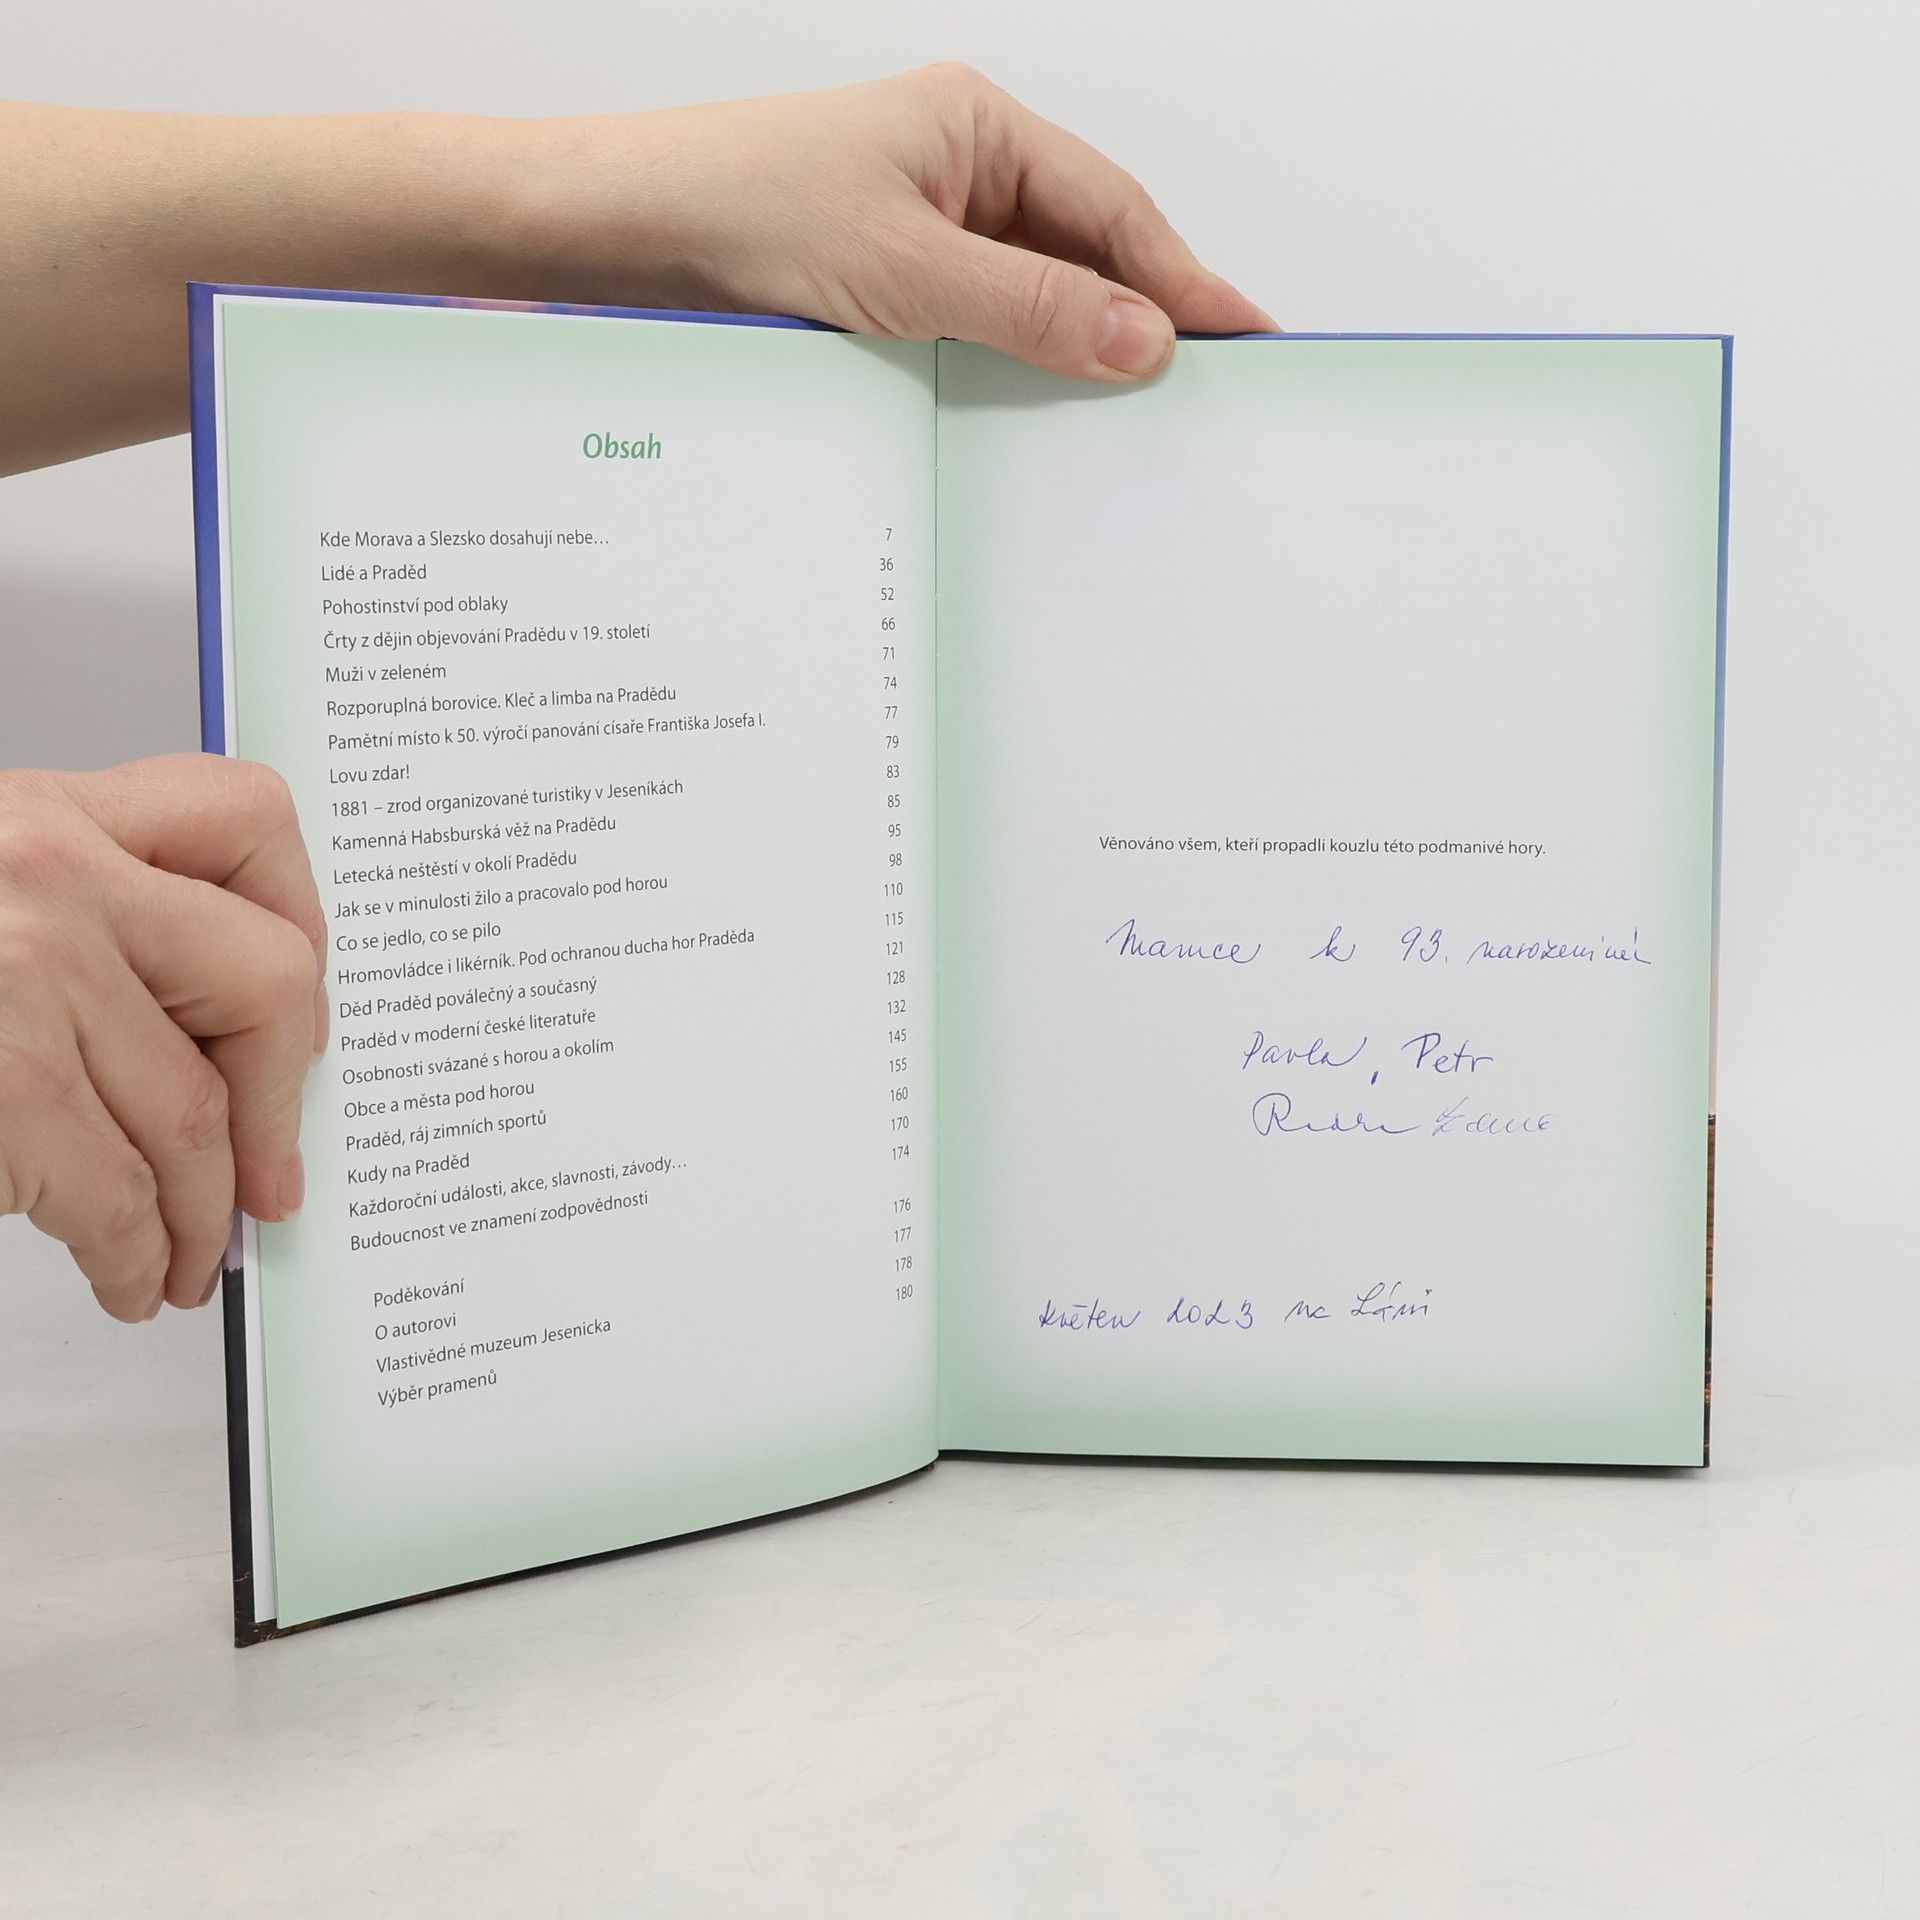 Obsah
Kde Morava a Slezsko dosahují nebe… 7
Lidé a Praděd 36
Pohostinství pod oblaky 52
Črty z dějin objevování Pradědu v 19. století 66
Muži v zeleném 71
Rozporuplná borovice. Kleč a limba na Pradědu 74
Pamětní místo k 50. výročí panování císaře Františka Josefa I. 77
Lovu zdar! 79
1881 – zrod organizované turistiky v Jeseníkách 83
Kamenná Habsburská věž na Pradědu 85
Letecká neštěstí v okolí Pradědu 95
Jak se v minulosti žilo a pracovalo pod horou 98
Co se jedlo, co se pilo 110
Hromovládce i likérník. Pod ochranou ducha hor Praděda 115
Děd Praděd poválečný a současný 121
Praděd v moderní české literatuře 128
Osobnosti svázané s horou a okolím 132
Obce a města pod horou 145
Praděd, ráj zimních sportů 155
Kudy na Praděd 160
Každoroční události, akce, slavnosti, závody… 170
Budoucnost ve znamení zodpovědnosti 174
Poděkování 176
O autorovi 177
Vlastivědné muzeum Jesenicka 178
Výběr pramenů 180
Věnováno všem, kteří propadli kouzlu této podmanivé hory.
Mamce k 93. narozeninám
Pavla, Petr
květen 2023 na Láni